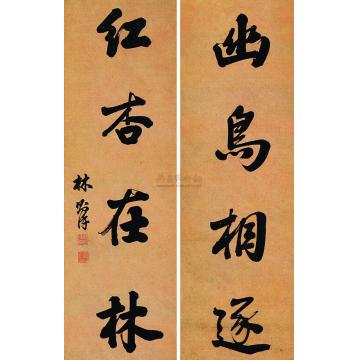 幽鳥相逐
红杏在林
林則徐